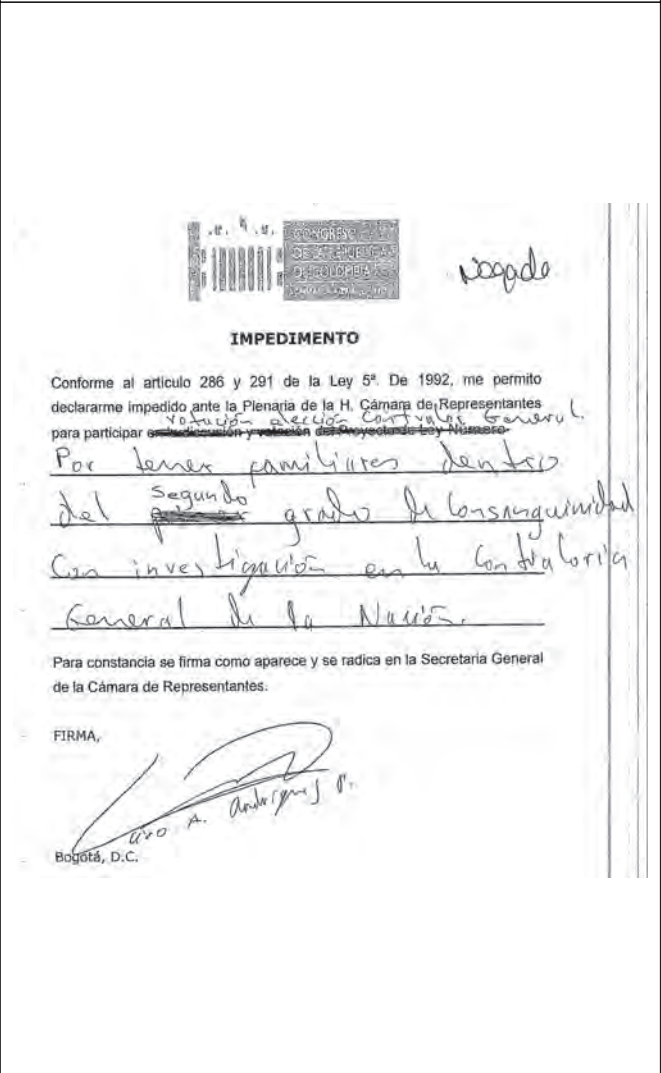 CONGRESO
DE LA REPÚBLICA
DE COLOMBIA
Negado
IMPEDIMENTO
Conforme al articulo 286 y 291 de la Ley 5ª. De 1992, me permito
declararme impedido ante la Plenaria de la H. Cámara de Representantes
votación elección Contralor General.
para participar en la discusión y votación del Proyecto de Ley Número
Por tener familiares dentro
del segundo grado de Consanguinidad
Con investigación en la Contraloria
General de la Nación.
Para constancia se firma como aparece y se radica en la Secretaria General
de la Cámara de Representantes.
FIRMA,
A.
Bogotá, D.C.